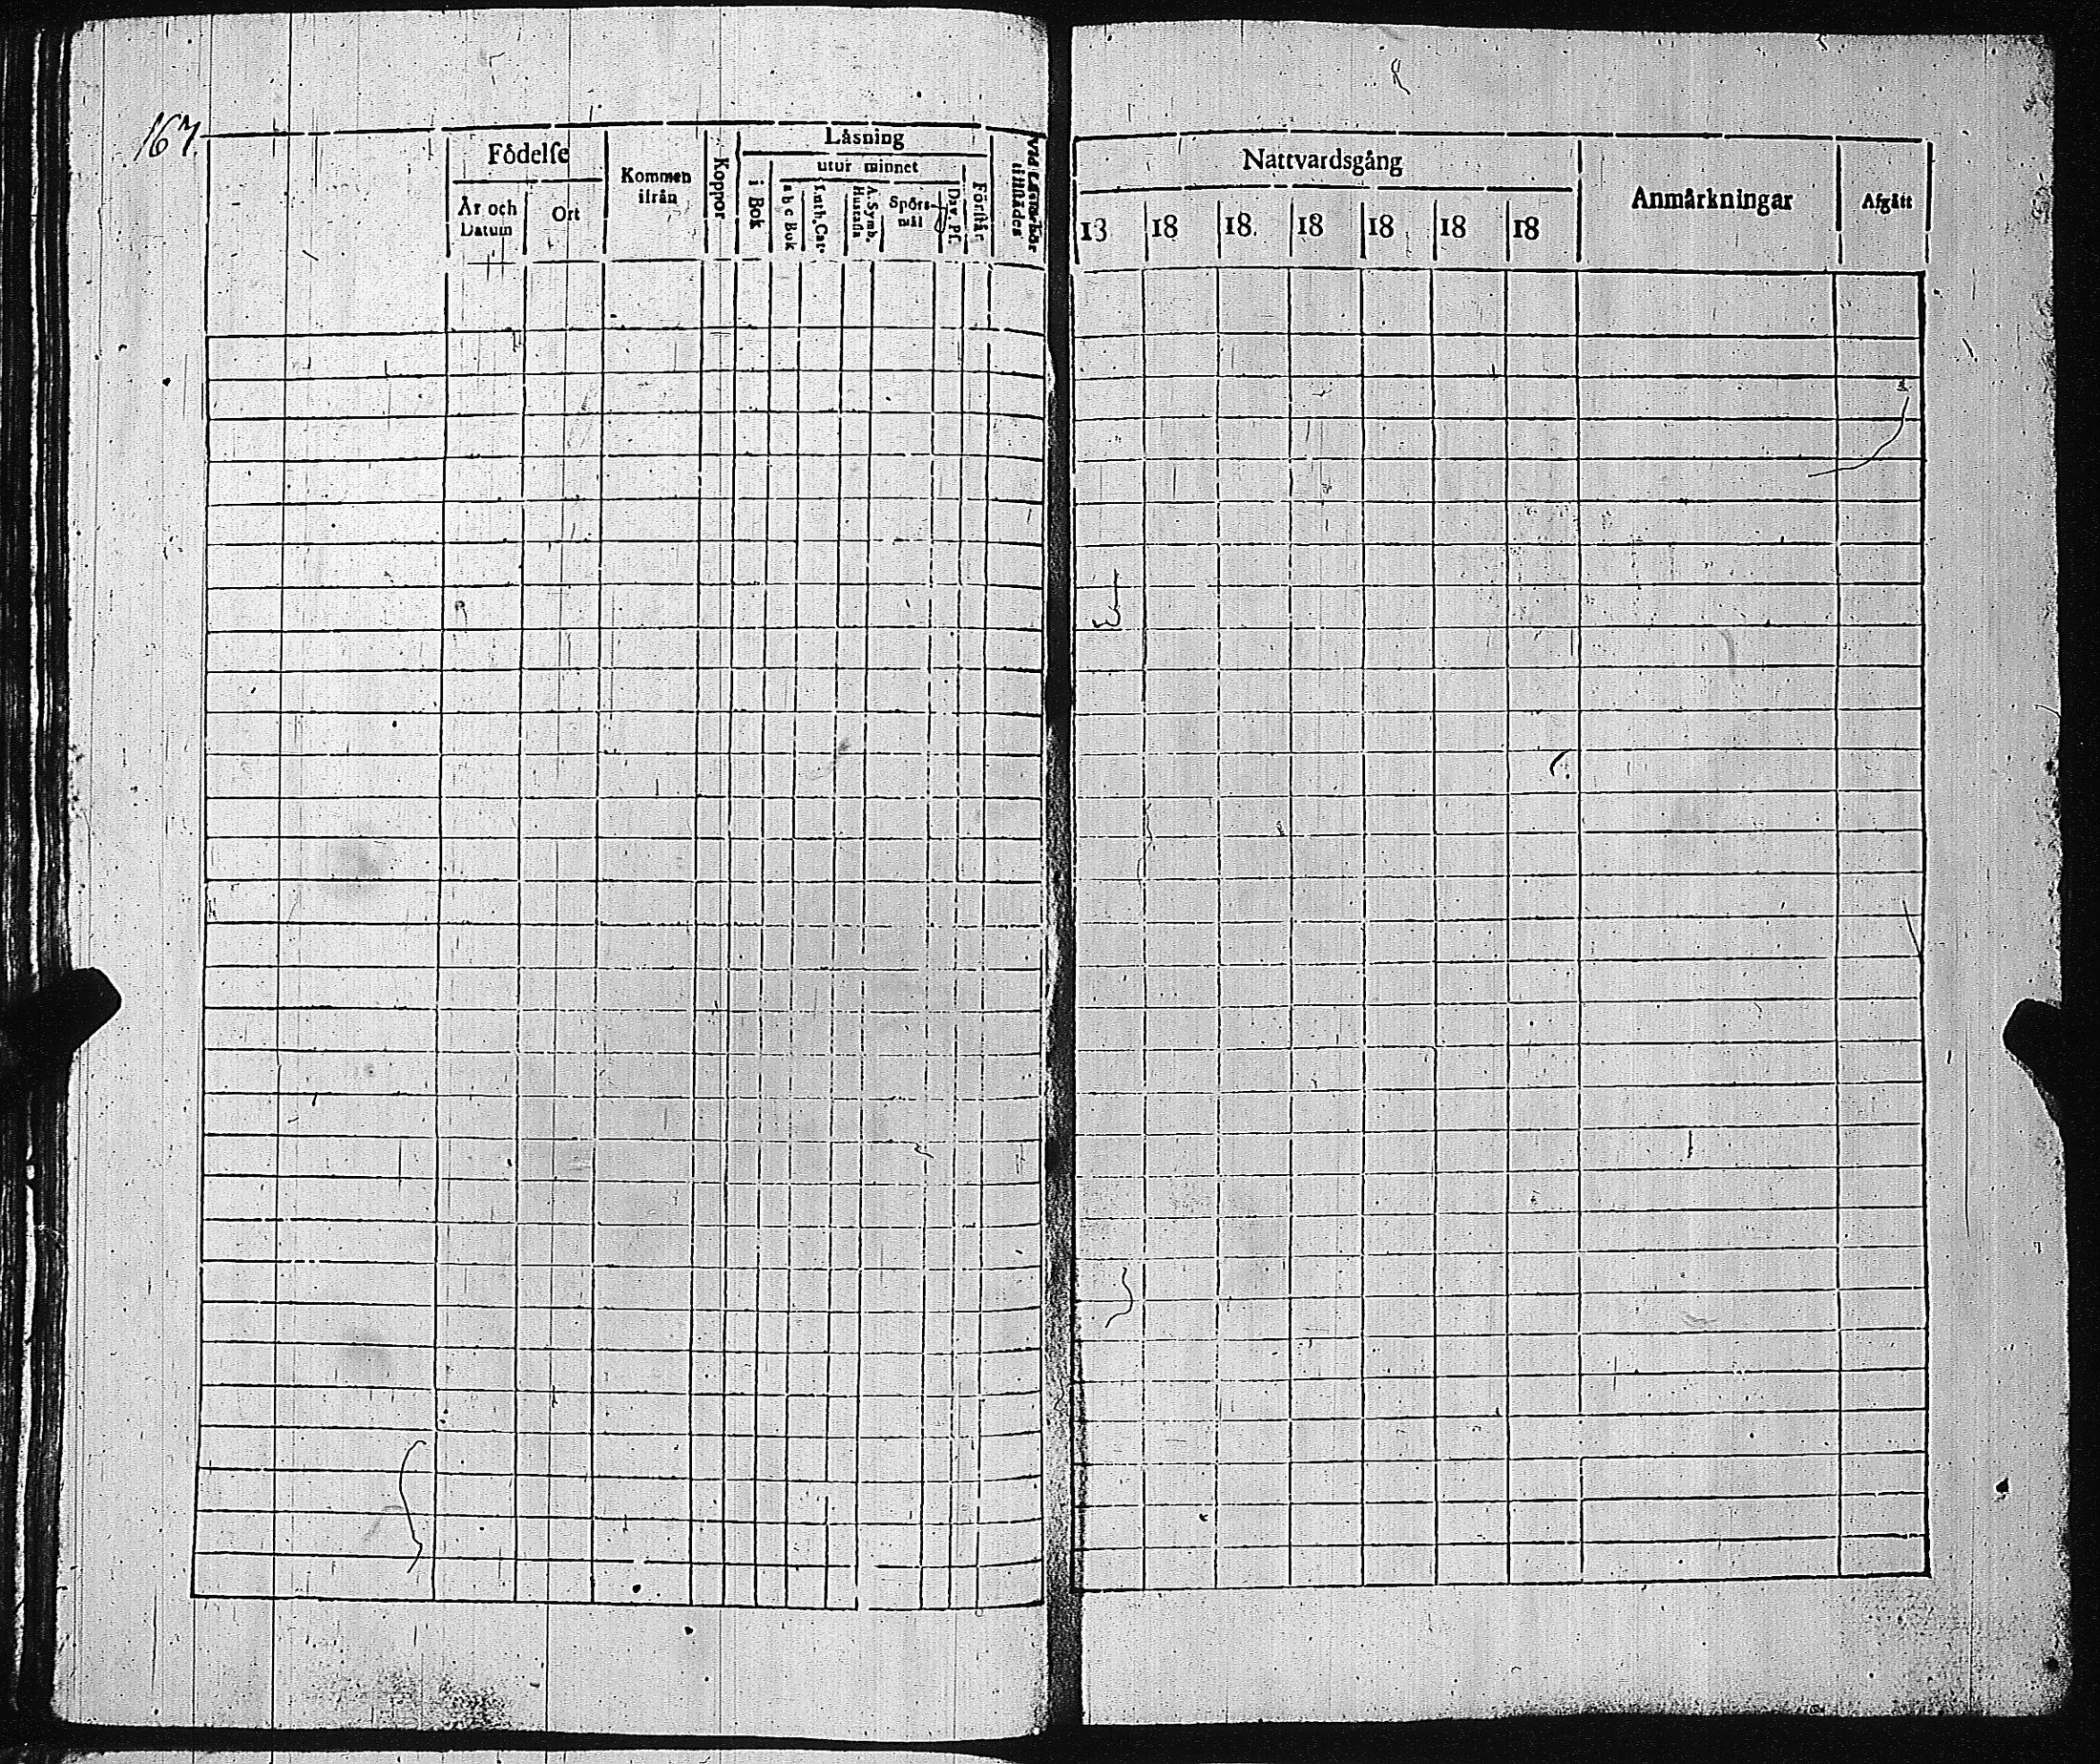 167.
Födelſe
År och Datum
Ort
Kommen ifrån
Koppor
Läsning
i Bok
utur minnet
a b c Bok
Luth. Cat.
A. Symb. Hustafla
Spörs- mål
Dav. Pſ.
Förſtår
tillſtådes
Nattvardsgång
18 18 18. 18 18 18 18
Anmärkningar
Afgått